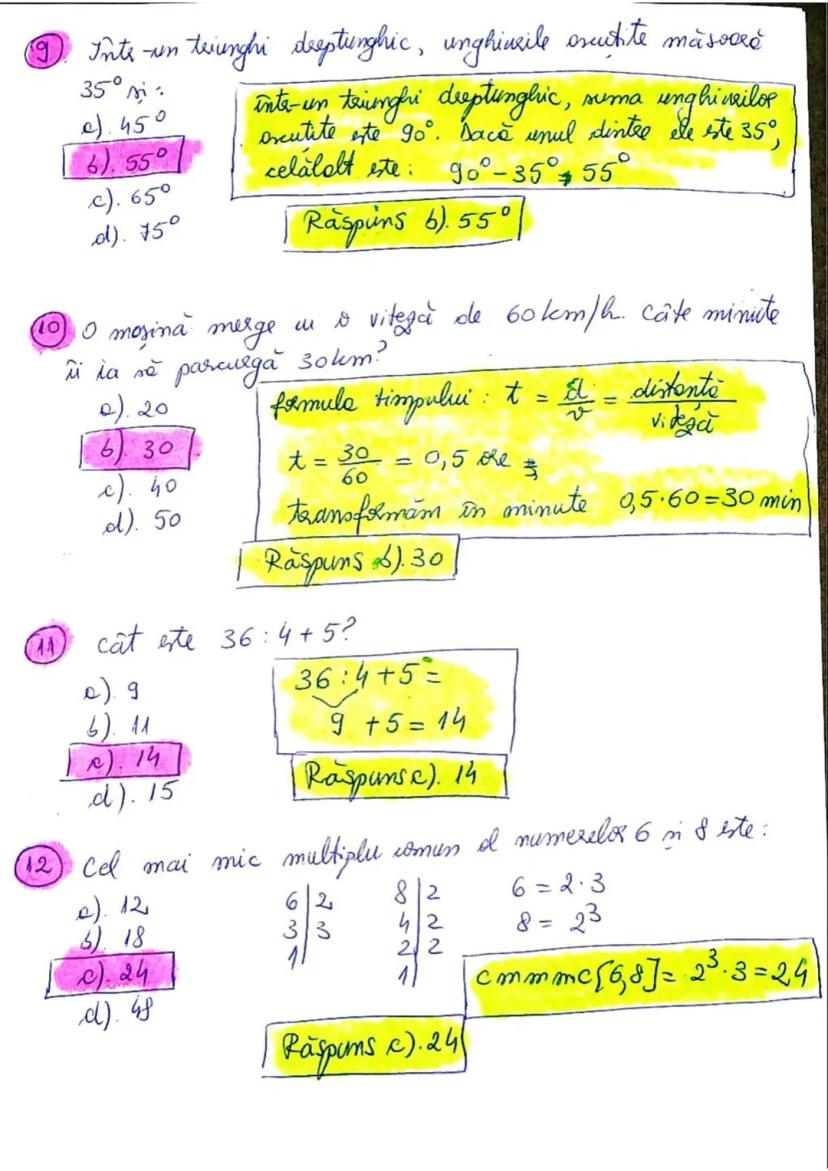 9. Într-un triunghi dreptunghic, unghiurile ascuțite măsoară
35° și:
a). 45°
b). 55°
c). 65°
d). 75°
într-un triunghi dreptunghic, suma unghiurilor
ascuțite este 90°. Dacă unul dintre ele este 35°,
celălalt este: 90° - 35° = 55°
Răspuns b). 55°
10 O mașină merge cu o viteză de 60 km/h. Câte minute
îi ia să parcurgă 30 km?
a). 20
b). 30
c). 40
d). 50
formula timpului : t = d/v = distanță/viteză
t = 30/60 = 0,5 ore ;
transformăm în minute 0,5·60=30 min
Răspuns b). 30
11 Cât este 36 : 4 + 5?
a). 9
b). 11
c). 14
d). 15
36 : 4 + 5 =
9 + 5 = 14
Răspuns c). 14
12 Cel mai mic multiplu comun al numerelor 6 și 8 este:
a). 12
b). 18
c). 24
d). 48
6 | 2
3 | 3
1 |
8 | 2
4 | 2
2 | 2
1 |
6 = 2·3
8 = 2³
cmmmc[6,8] = 2³·3 = 24
Răspuns c). 24